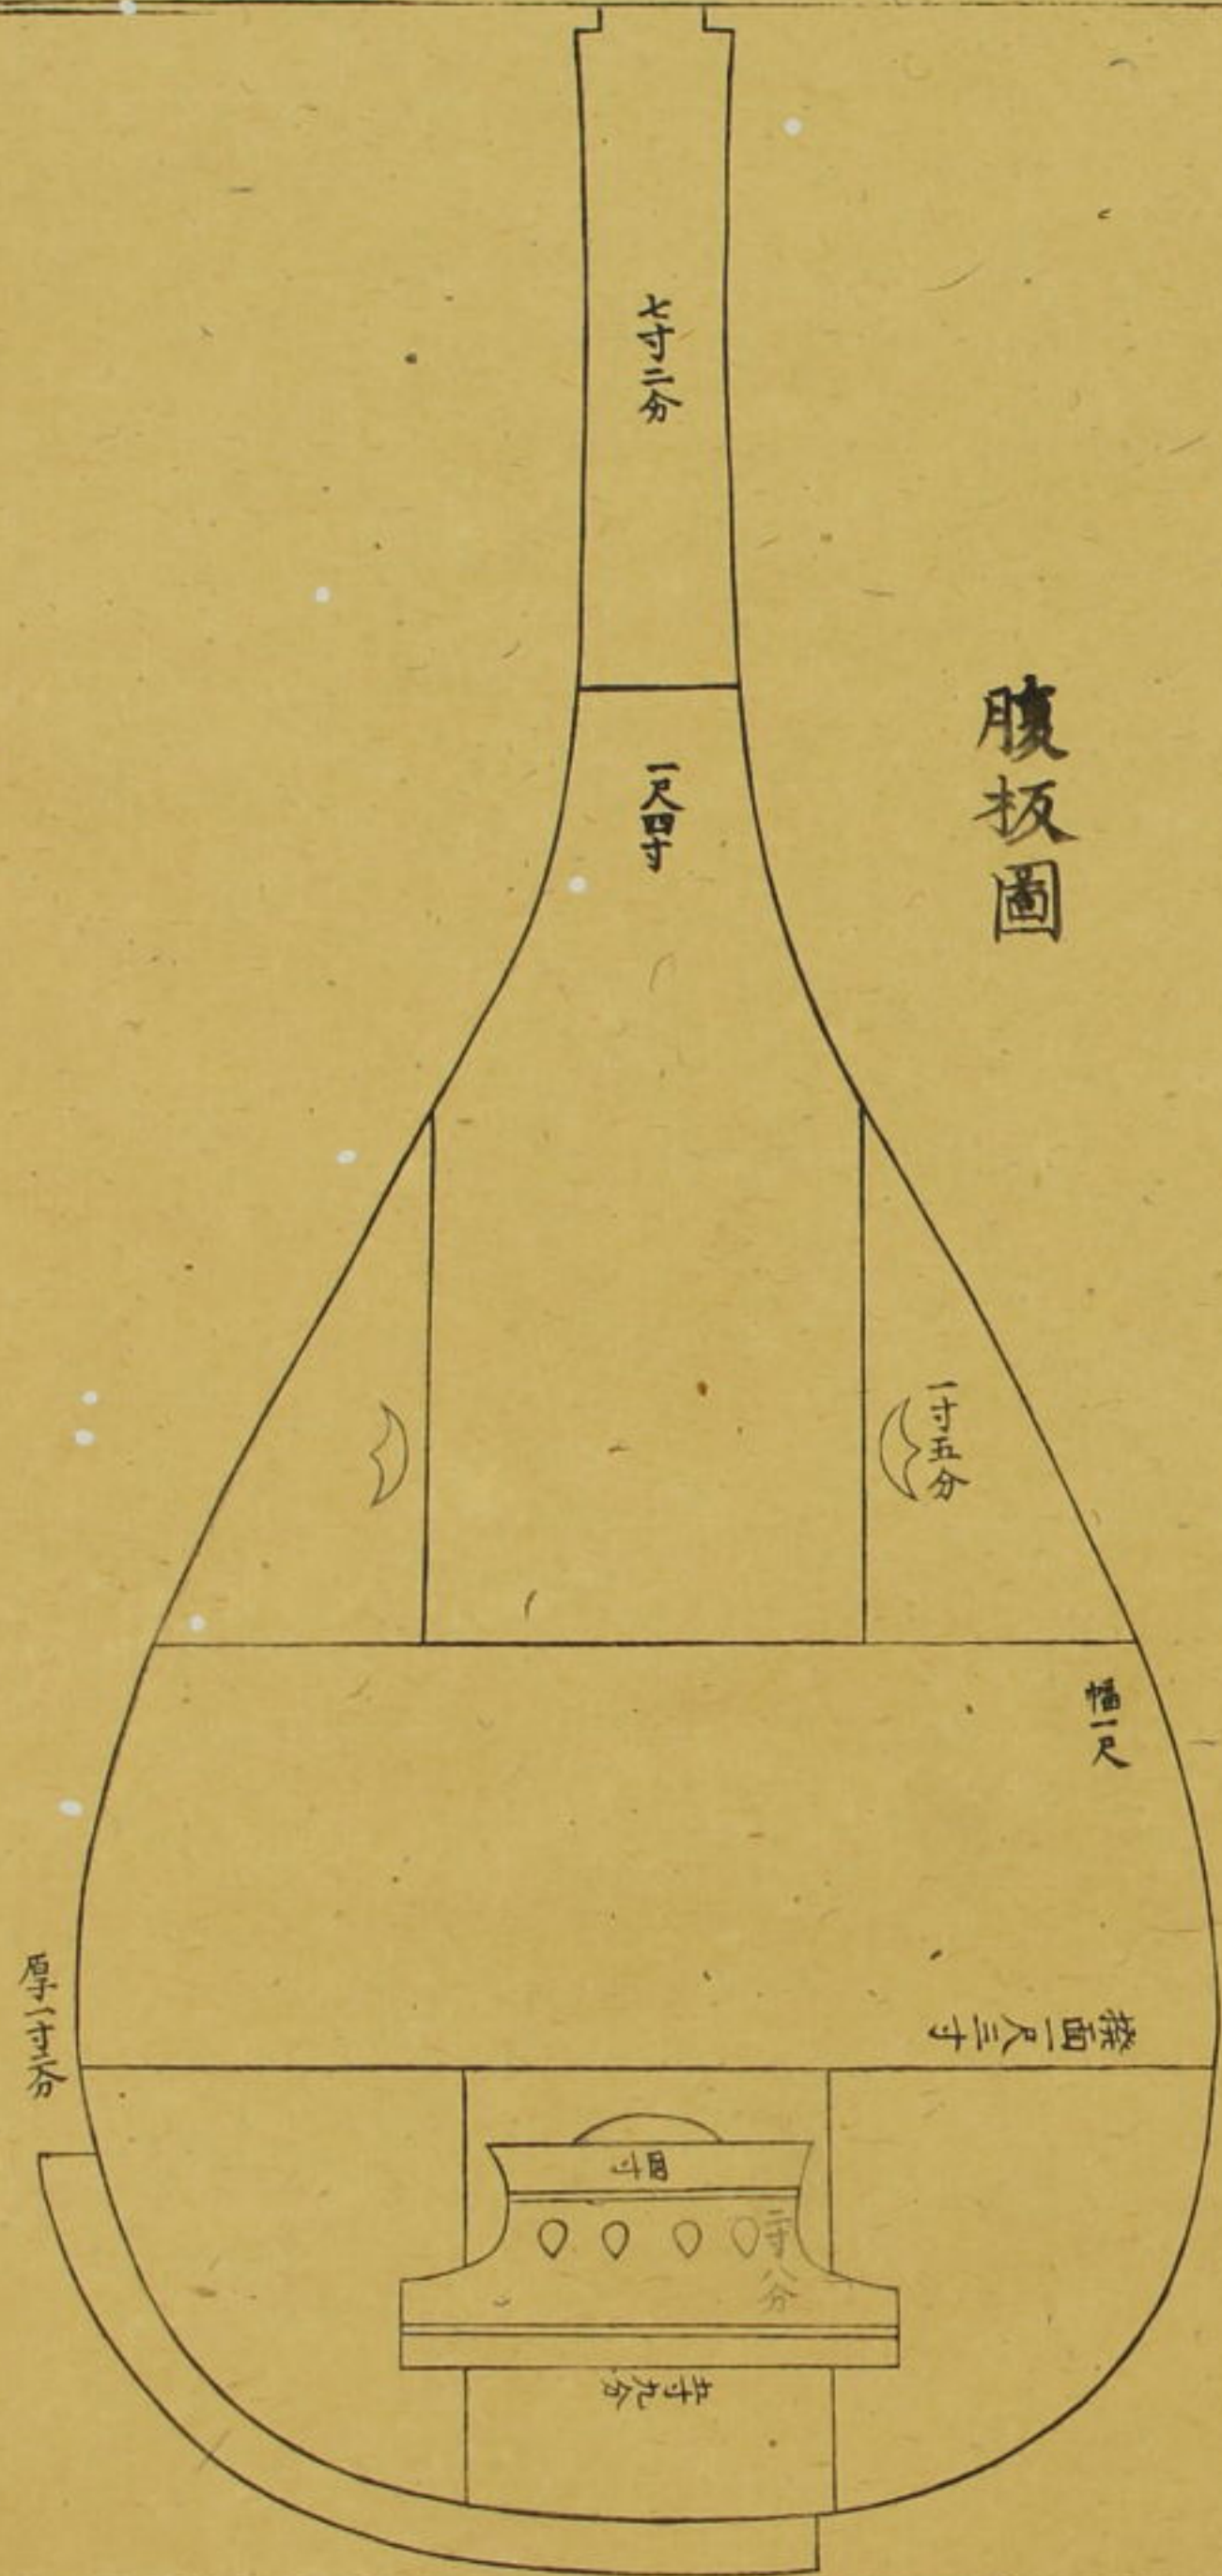 腹板圖
七寸二分
一尺四寸
一寸五分
幅一尺
撥面一尺三寸
厚一寸二分
四寸
二寸八分
五寸九分